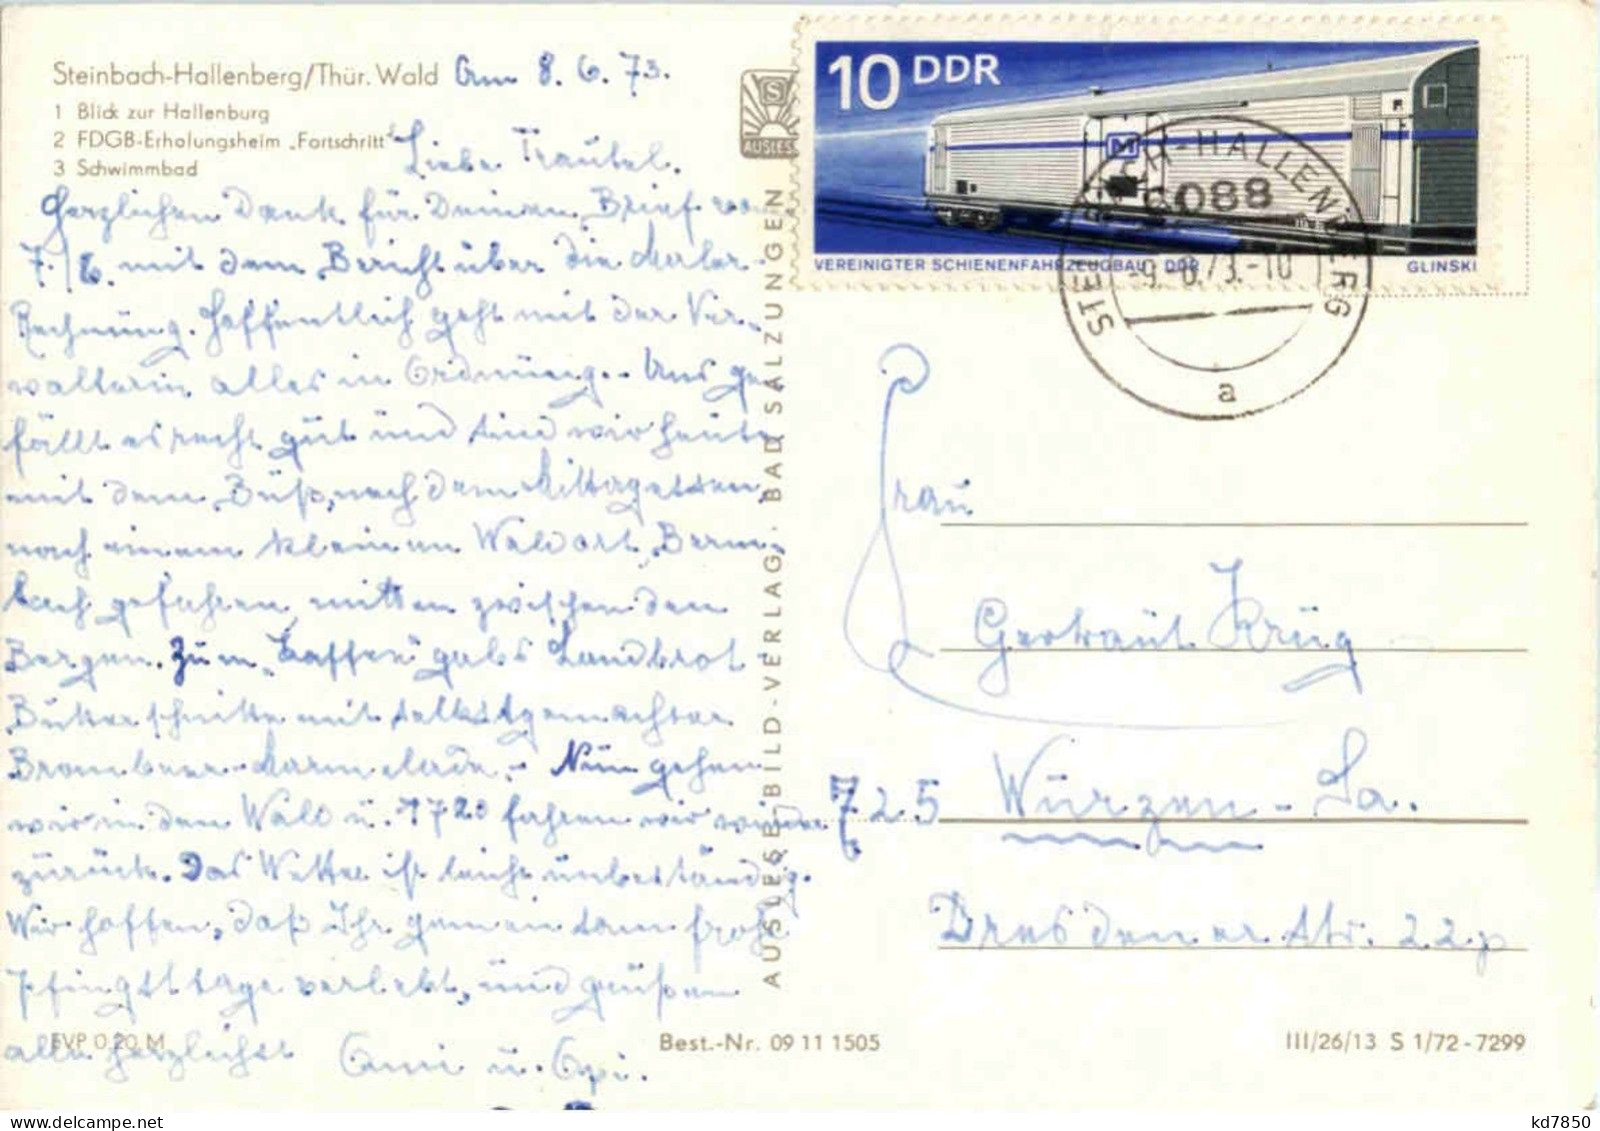 Steinbach-Hallenberg/Thür. Wald Am 8. 6. 73.
1 Blick zur Hallenburg
2 FDGB-Erholungsheim „Fortschritt"
3 Schwimmbad
Liebe Traudel.
Herzlichen Dank für Deinen Brief vom
7./6. mit dem Bericht über die Maler-
Rechnung. Hoffentlich geht mit der Ver-
walterin alles in Ordnung. - Uns ge-
fällt es recht gut und sind wir heute
mit dem Buß, nach dem Mittagessen,
nach einem kleinen Waldort, Berm-
bach gefahren, mitten zwischen den
Bergen. Zum Kaffee gab's Landbrot-
Butterschnitte mit selbstgemachter
Brombeer-Marmelade. - Nun gehen
wir in den Wald u. 1720 fahren wir wieder
zurück. Das Wetter ist leicht unbeständig.
Wir hoffen, daß Ihr gemeinsam frohe
Pfingsttage verlebt, und grüßen
alle herzlichst Omi u. Opi.
EVP 0,20 M
Best.-Nr. 09 11 1505
AUSLESE-BILD-VERLAG · BAD SALZUNGEN
S
AUSLESE
10 DDR
M
VEREINIGTER SCHIENENFAHRZEUGBAU DDR
GLINSKI
STEINBACH-HALLENBERG
6088
-9.-6.73.-10
a
Frau
Gertraut Krug
725 Wurzen - Sa.
Dresdener Str. 22p
III/26/13 S 1/72-7299
kd7850